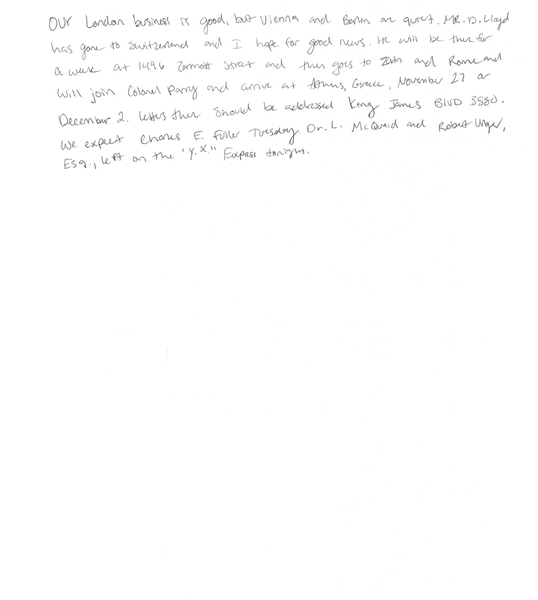 OUR London business is good, but Vienna and Berlin are quiet. MR. D. Lloyd
has gone to Switzerland and I hope for good news. He will be there for
a week at 1496 Zermott Street and then goes to Turin and Rome and
will join Colonel Parry and arrive at Athens, Greece, November 27 or
December 2. Letters there should be addressed King James Blvd. 3580.
We expect Charles E. Fuller Tuesday. Dr. L. McQuaid and Robert Unger,
Esq., left on the "Y.X." Express tonight.